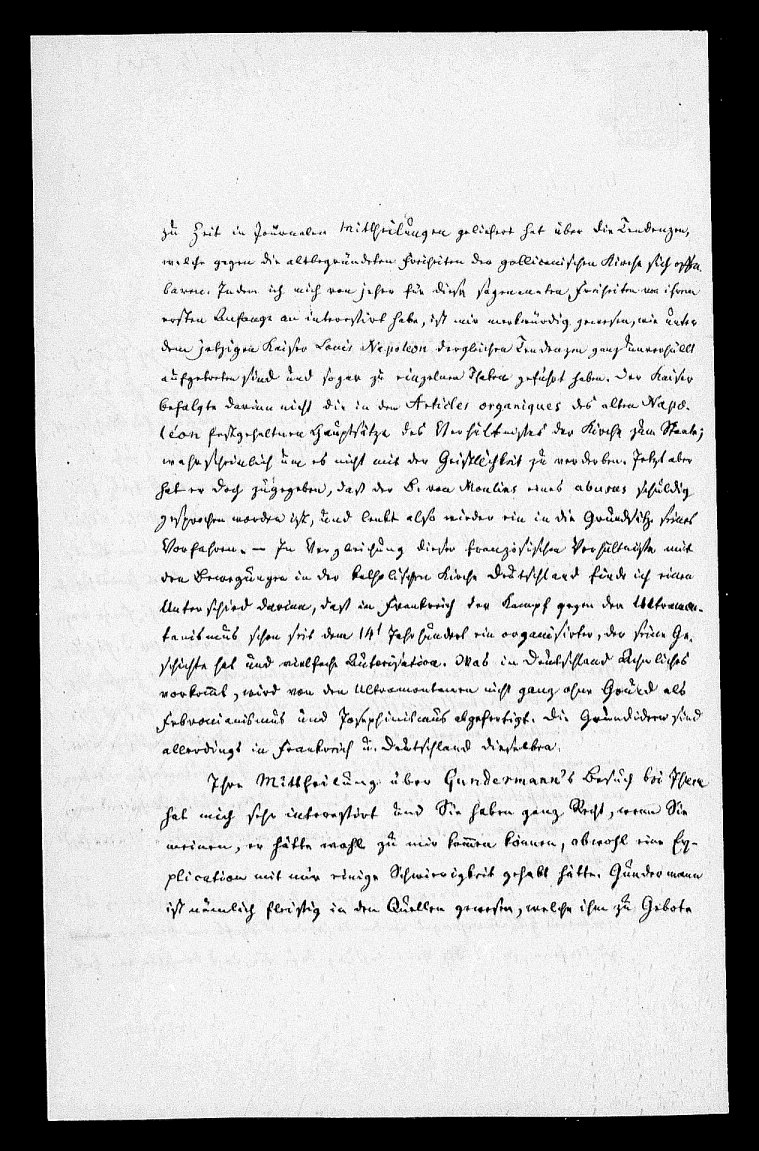 zu Zeit in Journalen Mittheilungen geliefert hat über die Tendenzen,
welche gegen die altbegründeten Freiheiten der gallicanischen Kirche sich offen
baren. Indem ich mich von jeher für diese sogenannten Freiheiten von ihrem
ersten Anfange an interessirt habe, ist mir merkwürdig gewesen, wie unter
dem jetzigen Kaiser Louis Napoleon dergleichen Tendenzen ganz unverhüllt
aufgetreten sind und sogar zu einzelnen Thaten geführt haben. Der Kaiser
befolgte darinn nicht die in den Articles organiques des alten Napo-
léon festgehaltnen Hauptsätze des Verhältnisses der Kirche zum Staate;
wahrscheinlich um es nicht mit der Geistlichkeit zu verderben. Jetzt aber
hat er doch zugegeben, daß der B. von Moulins eines abusus schuldig
gesprochen worden ist, und lenkt also wieder ein in die Grundsätze seines
Vorfahren. — In Vergleichung dieser französischen Verhältnisse mit
den Bewegungen in der katholischen Kirche Deutschland finde ich einen
Unterschied darinn, daß in Frankreich der Kampf gegen den Ultramon-
tanismus schon seit dem 14t Jahrhundert ein organisirter, der seine Ge-
schichte hat und vielfache Autorisation. Was in Deutschland Aehnliches
vorkomt, wird von den Ultramontanen nicht ganz ohne Grund als
Febronianismus und Josephinismus abgefertigt. Die Grundideen sind
allerdings in Frankreich u. Deutschland dieselben.
Ihre Mittheilung über Gundermann's Besuch bei Ihnen
hat mich sehr interessirt und Sie haben ganz Recht, wenn Sie
meinen, er hätte wohl zu mir kommen können, obwohl eine Ex-
plication mit mir einige Schwierigkeit gehabt hätte. Gundermann
ist nämlich fleißig in den Quellen gewesen, welche ihm zu Gebote